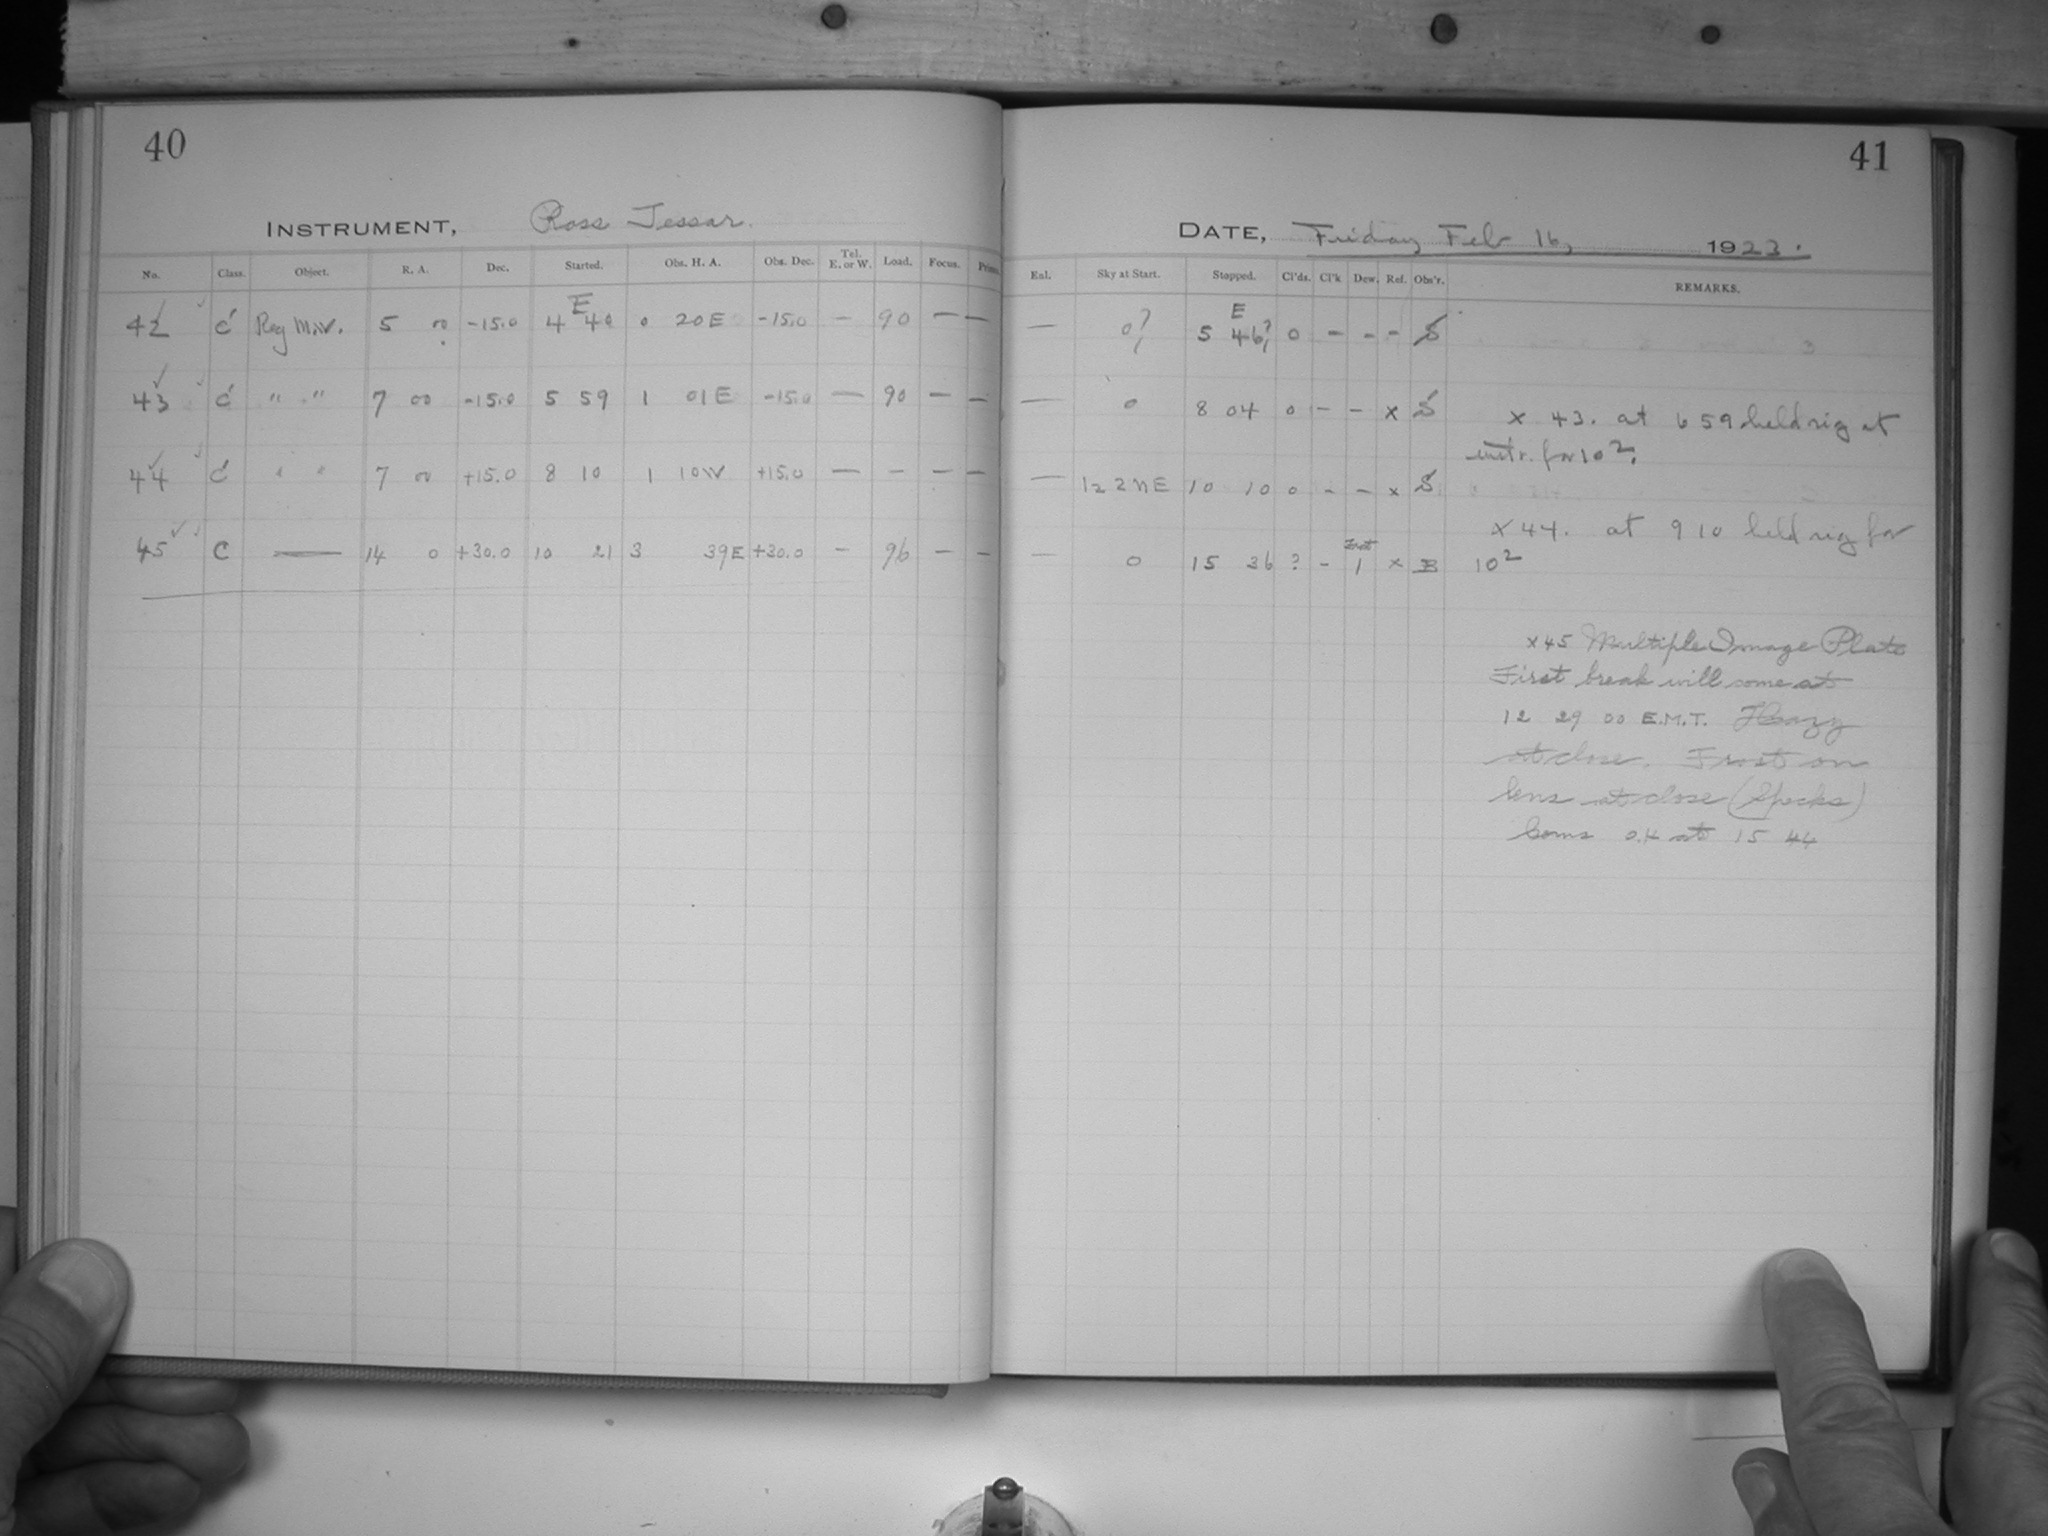 40
INSTRUMENT, Ross Tessar.
No. Class. Object. R. A. Dec. Started. Obs. H. A. Obs. Dec. Tel. E. or W. Load. Focus.
42 C' Reg M.W. 5 00 -15.0 E 4 40 0 20 E -15.0 — 90 — —
43 C' " " 7 00 -15.0 5 59 1 01 E -15.0 — 90 — —
44 C' " " 7 00 +15.0 8 10 1 10 W +15.0 — — — —
45 C — 14 0 +30.0 10 21 3 39 E +30.0 — 96 — —
41
DATE, Friday Feb 16, 1923.
Enl. Sky at Start. Stopped. Cl'ds. Cl'k Dew. Ref. Obs'r. REMARKS.
— 0? E 5 46? 0 - - - S
— 0 8 04 0 - - x S
— 12 2 NE 10 10 0 - - x S
— 0 15 36 ? - Frost 1 x B
x 43. at 6 59 held rig at
instr. for 10 2.
x 44. at 9 10 held rig for
10 2
x 45 Multiple Image Plate
First break will come at
12 29 00 E.M.T. Hazy
at close. Frost on
lens at close (Specks)
0.4 at 15 44